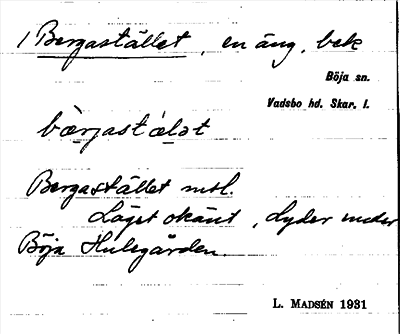 / Bergastället, en äng, bek
Böja sn.
Vadsbo hd. Skar. l.
bærjast ælət
Bergastället msl.
Läget okänt, lyder under
Böja Hulegården.
L. MADSÉN 1931